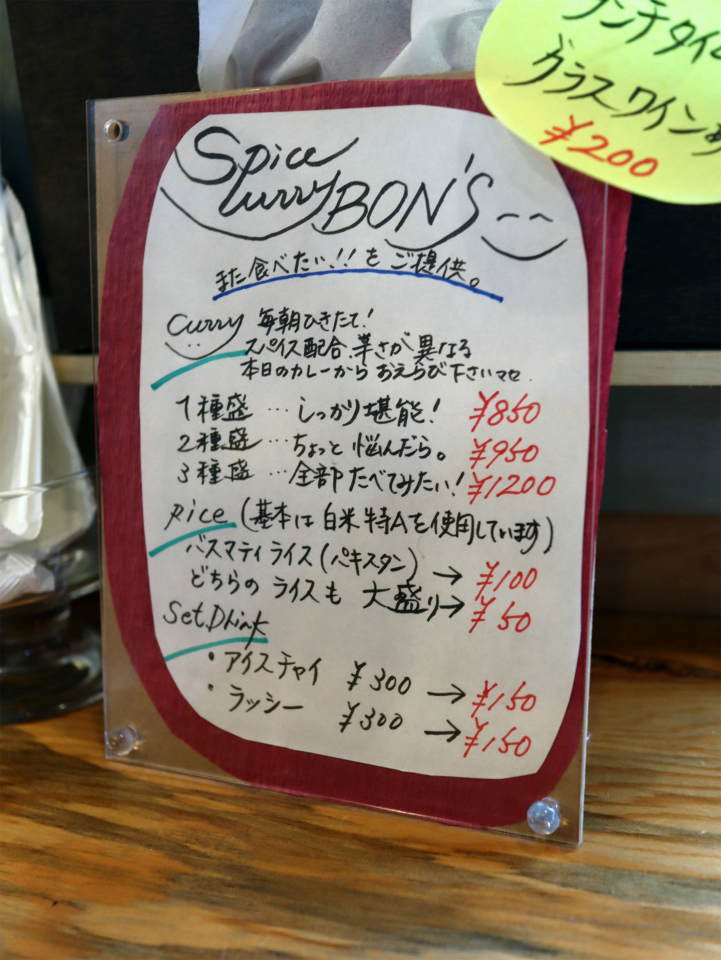 ランチタイム
グラスワイン
¥200
Spice
Curry BON'S
また食べたい!!をご提供。
Curry 毎朝ひきたて!
スパイス配合、辛さが異なる
本日のカレーから おえらび下さいマセ.
1種盛 …しっかり堪能! ¥850
2種盛 …ちょっと悩んだら。 ¥950
3種盛 …全部たべてみたい! ¥1200
Rice (基本は白米特Aを使用しています)
バスマティライス(パキスタン) → ¥100
どちらの ライスも 大盛り→ ¥50
Set Drink
・アイスチャイ ¥300 → ¥150
・ラッシー ¥300 → ¥150